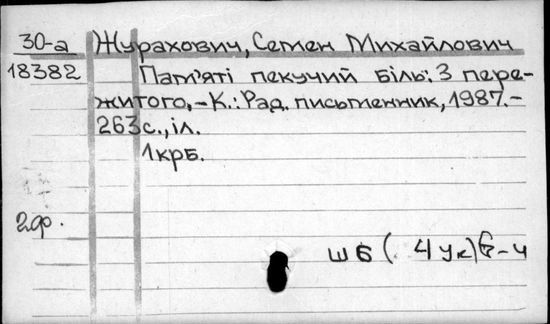 30-а Журахович, Семен Михайлович
18382 Пам'яті пекучий біль: З пере-
житого. – К.: Рад. письменник, 1987. –
263с., іл.
1крб.
2ф.
шб ( 4ук)6-4